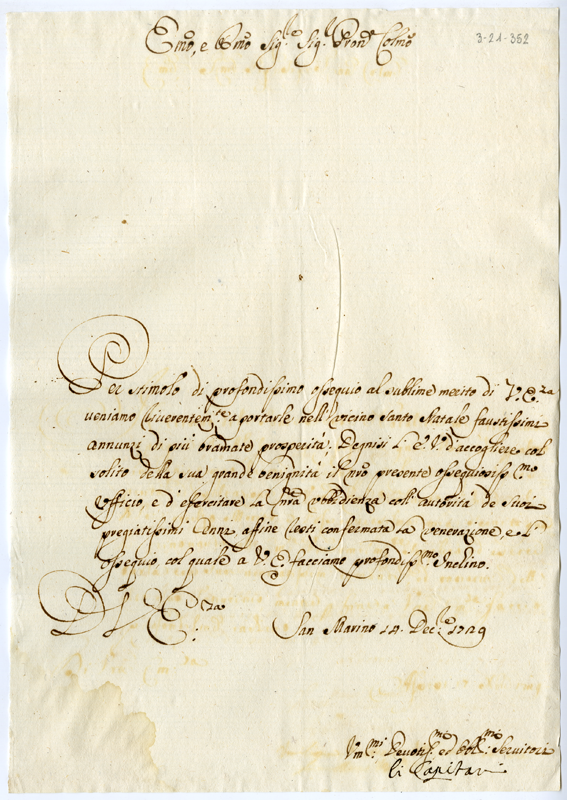 Emo, e Rmo Sig.re Sig.r Pron.e Colmo
3-21-352
Per stimolo di profondissimo ossequio al sublime merito di V. E.za
veniamo riverentem.te a portarle nell'vicino Santo Natale faustissimi
annunzi di più bramate prosperità; Degnisi l'E. V. d'accogliere col
solito della sua grande benignità il nro presente ossequiosiss.mo
Officio, e d'esercitare la nra obbedienza coll'autorità de Suoi
pregiatissimi Cenni, affine resti confermata la venerazione, e l'
ossequio col quale a V. E. facciamo profondiss.mo Inchino.
Di V. E.za
San Marino 14. Dec.re 1729
Vm.mi Devotis.mi ed Obb.mi Servitori
li Capitani